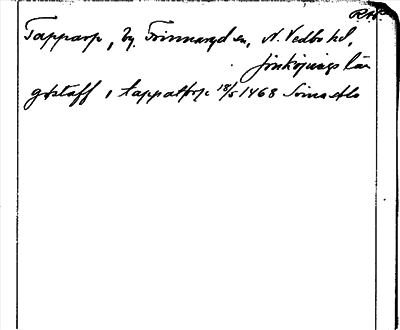 R.A.
Tapparp, by, Frinnaryd sn, N. Vedbo hd,
Jönköpings län
gøstaff i tappattorp 18/5 1468